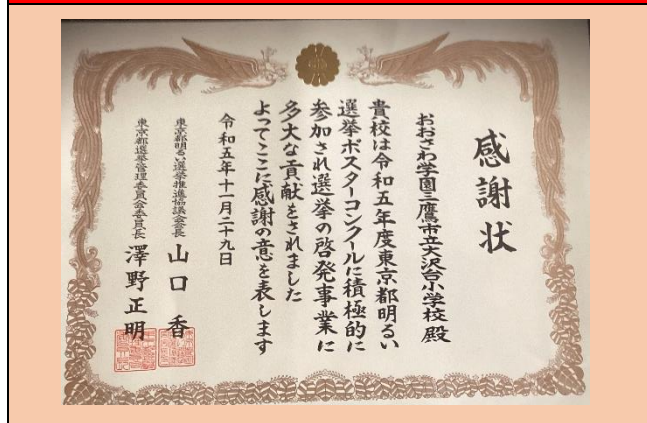 感謝状
おおさわ学園三鷹市立大沢台小学校 殿
貴校は令和五年度東京都明るい
選挙ポスターコンクールに積極的に
参加され選挙の啓発事業に
多大な貢献をされました
よってここに感謝の意を表します
令和五年十一月二十九日
東京都明るい選挙推進協議会会長 山口 香
東京都選挙管理委員会委員長 澤野正明